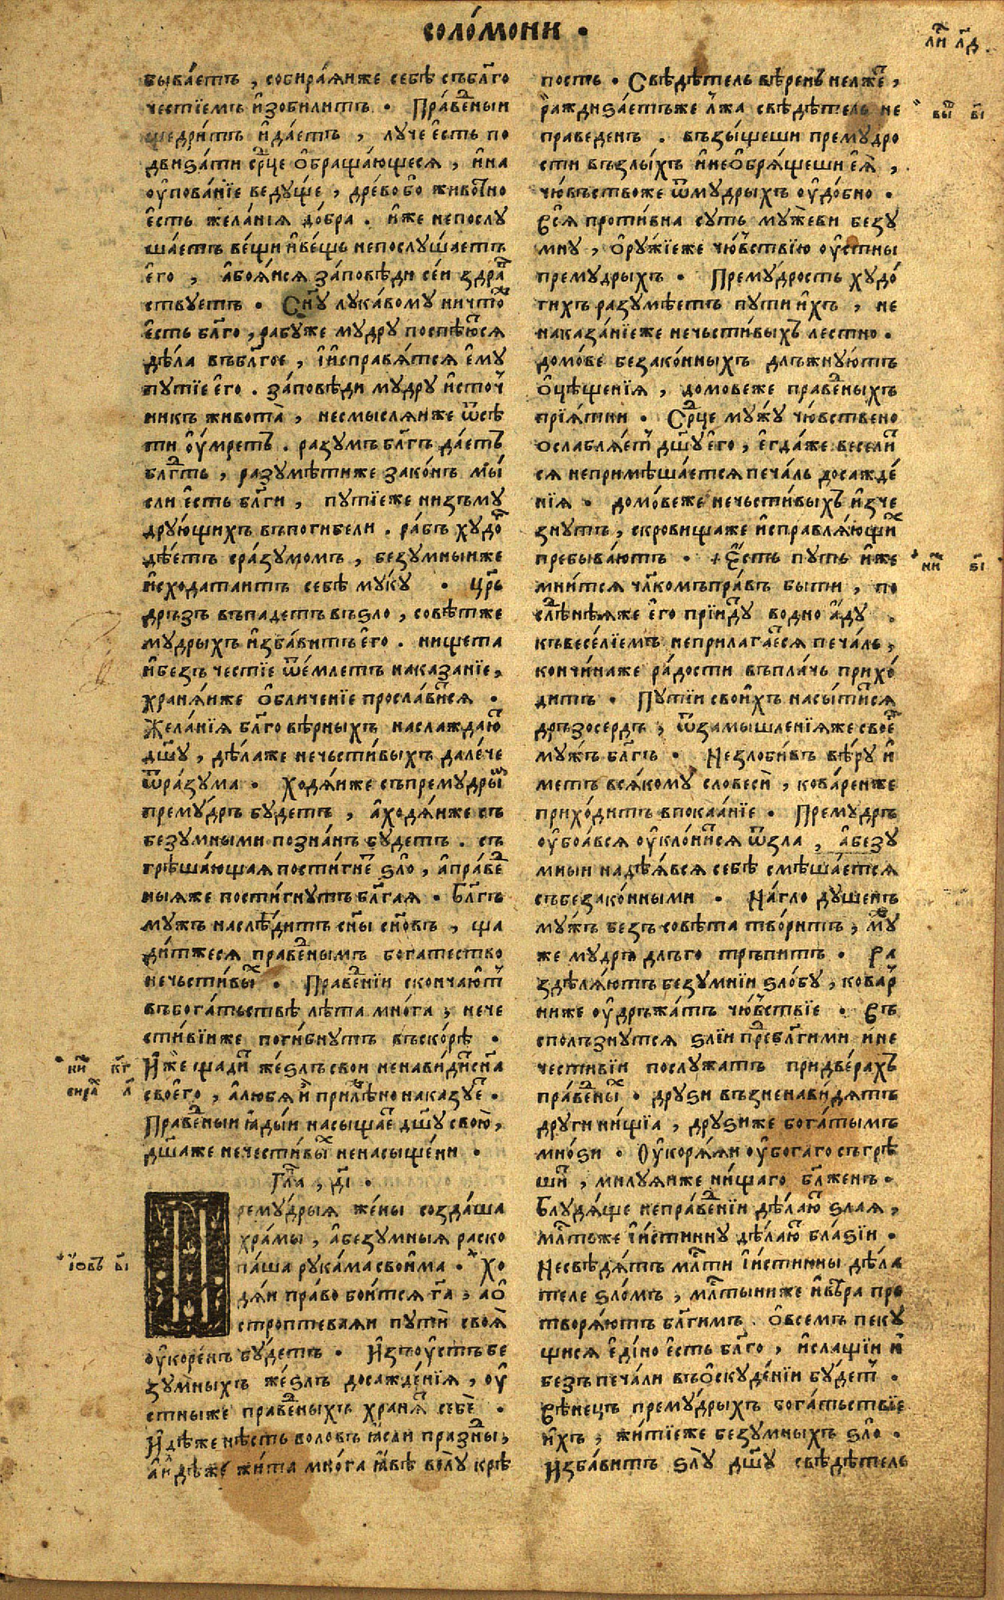 соло́мони .
быва́етъ , собира́яиже себѣ̀ съблг҃о
че́стїемъ и҆зоби́литъ . Пра́веⷣныи
щедри́тъ и҆дае́тъ , лу́че є҆сть по
двиѕа́ти срⷣце ѻ҆браща́ющеся , и҆на
ѹ҆пова́нїе веду́ще , дре́во бо живо́тно
є҆сть жела́нїя до́бра . и҆́же непослу
ша́етъ ве́щи и҆ве́щь непослу́шаетъ
є҆го̀ , а҆боя́ися за́повѣди се́и здра́
ствуетъ . Сн҃у лука́вому ничто́же
є҆́сть бл҃го , рабу́же му́дру поспѣ́ются
дѣ́ла въбл҃гое , и҆и҆спра́вятся є҆му̀
путїе є҆го̀ . за́повѣди му́дру и҆сто́ч
никъ живота̀ , несмысляи́же ѿсѣ́
ти ѹ҆́мретъ . ра́зумъ бл҃гъ дае́тъ
бл҃гⷣть , разумѣ́тиже зако́нъ мы́
сли є҆́сть бл҃ги , путїеже низъму
дру́ющихъ въпоги́бели . ра́бъ худо́
дѣ́етъ сра́зумомъ , безу́мныиже
и҆схода́таитъ себѣ̀ му́ку . цр҃ь
дръ́зъ въпаде́тъ въѕло̀ , совѣ́тже
му́дрыхъ и҆зба́витъ є҆го̀ . нищета
и҆безъче́стїе ѿе́млетъ наказа́нїе ,
храня́иже ѻ҆бличе́нїе просла́вится .
Жела́нїя бл҃говѣ́рныхъ наслажда́ю
дш҃у , дѣ́лаже нечьсти́выхъ дале́че
ѿра́зума . Ходя́иже съпрему́дрыⷨ
прему́дръ бу́детъ , а҆ходя́иже съ
безу́мными позна́нъ бу́детъ . съ
грѣша́ющая пости́гнеⷮ ѕло̀ , а҆пра́веⷣ
ныяже пости́гнутъ бл҃га́я . Бл҃гъ
му́жъ наслѣ́дитъ сн҃ы сно҃въ , ща
ди́тжеся пра́веⷣнымъ бога́тество
нечьсти́выⷯ . Пра́веⷣнїи сконча́юⷮ
въбога́тьствѣ лѣ́та мно́га , нече
сти́вїиже поги́бнутъ въско́рѣ .
И҆́же щади́ⷮ же́ѕлъ свои ненави́диⷮ сн҃а
своего̀ , а҆любя́и приле́жно наказу́еⷮ .
Пра́веⷣныи ꙗ҆ды́и насыща́еⷮ дш҃у свою̀ ,
дш҃аже нечести́выⷯ ненасы́щени .
Глⷡ҇а , д҃і .
Прему́дрыя же́ны созда́ша
хра́мы , а҆безу́мныя раско
па́ша рука́ма свои́ма . Хо
дя́и пра́во бои́тся гⷭ҇а , а҆
стропте́ваяи пути́ своя̀
ѹ҆коре́нъ бу́детъ . И҆зъѹ҆́стъ бе
зу́мныхъ же́ѕлъ досажде́нїя , ѹ҆
стны́же пра́веⷣныхъ храня́ⷮ себѐ .
И҆дѣ́же нѣ́сть воло́въ ꙗ҆́сли пра́зны ,
а҆и҆дѣ́же жи́та мно́га ꙗ҆́вѣ во́лу крѣ
пость . Свѣдѣ́тель вѣ́ренъ нелжеⷮ ,
ражди́ѕаетъже лжа свѣдѣ́тель не
пра́веденъ . възы́щеши прему́дро
сти възлы́хъ и҆неѻ҆бря́щеши є҆я̀ ,
чю́въствоже ѿму́дрыхъ ѹ҆до́бно .
Вся̀ проти́вна суть му́жеви безу
мну , ѻ҆ру́жїеже чю́вствїю ѹ҆стны
прему́дрыхъ . Прему́дрость худо́
гихъ разумѣ́етъ пути и҆́хъ , не
наказа́нїеже нечьсти́выхъ ле́стно .
домо́ве безако́нныхъ длъжну́ютъ
ѻ҆цѣще́нїя , домовеже пра́веⷣныхъ
прїя́тни . Срⷣце му́жу чю́вствено
ослабля́етъ дш҃у є҆го̀ , є҆гда́же весели́т
ся непримѣша́ется печа́ль досажде́
нїя . домо́веже нечьсти́выхъ и҆зче
знутъ , скровищаже и҆справля́ющиⷯ
пребыва́ютъ . + Є҆́сть пу́ть и҆́же
мни́тся чл҃комъ пра́въ бы́ти , по
слѣ́няяже є҆го̀ прїи́дуⷮ водно а҆́ду .
къвесе́лїемъ неприлага́еⷮся печа́ль ,
кончи́наже ра́дости въпла́чь прихо́
дитъ . Пути́и свои́хъ насы́тится
дръзосе́рдъ , ѿзамышле́нїяже своеⷢ
му́жъ бл҃гъ . Незло́бивъ вѣ́ру и҆
метъ вся́кому словесѝ , кова́рениже
прихо́дитъ впокаа́нїе . Прему́дръ
ѹ҆боа́вся ѹ҆клони́тся ѿзла , а҆безу́
мныи надѣ́явся себѣ̀ смѣша́ется
събезако́нными . На́гло ду́шенъ
му́жъ безсъсовѣ́та тво́ритъ , му
же мудръ длъ́го тръпитъ . Ра
здѣля́ютъ безу́мнїи ѕло́бу , кова́р
ниже ѹ҆дръжа́тъ чю́вствїе . Въ
сполъзну́тся ѕлїи преⷣбл҃гими и҆не
чести́вїи послужа́тъ придве́рахъ
пра́веⷣныⷯ . дру́ѕи възненави́дятъ
дру́ги ни́щїа , дру́ѕиже бога́тымъ
мно́ѕи . Ѹ҆коря́яи ѹ҆бо́гаго съгрѣ
ши́ⷮ , ми́луяиже ни́щаго бл҃же́нъ .
Блудя́ще непра́веⷣнїи дѣ́лаюⷮ ѕлая ,
млⷭ҇тьже и҆и҆́стинну дѣ́лаюⷮ бл҃а́ѕїи .
Несвѣ́дятъ млⷭ҇ти и҆и҆́стинны дѣ́ла
теле ѕло́мъ , млⷭ҇тыниже и҆вѣ́ра про
творя́ютъ бл҃ги́мъ . ѻ҆всемъ пеку́
щися є҆ди́но є҆́сть бл҃го , и҆сла́щїи и҆
безъпеча́ли въѻ҆скуде́нїи бу́детⷮ .
Вѣне́цъ прему́дрыхъ бога́тьствїе
и҆́хъ , жи́тїеже безу́мныхъ ѕло̀ .
И҆зба́витъ ѕлу̀ дш҃у свѣдѣ́тель